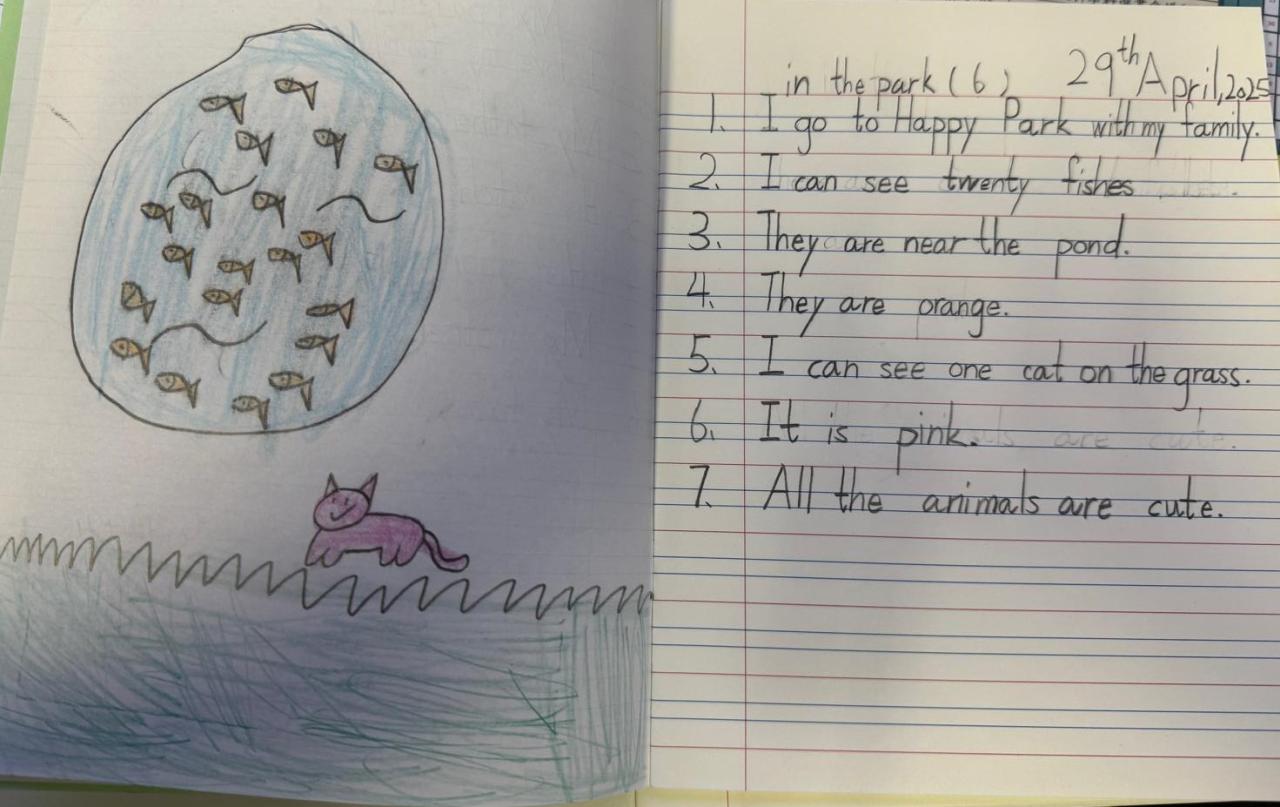 in the park (6) 29th April, 2025
1. I go to Happy Park with my family.
2. I can see twenty fishes
3. They are near the pond.
4. They are orange.
5. I can see one cat on the grass.
6. It is pink.
7. All the animals are cute.